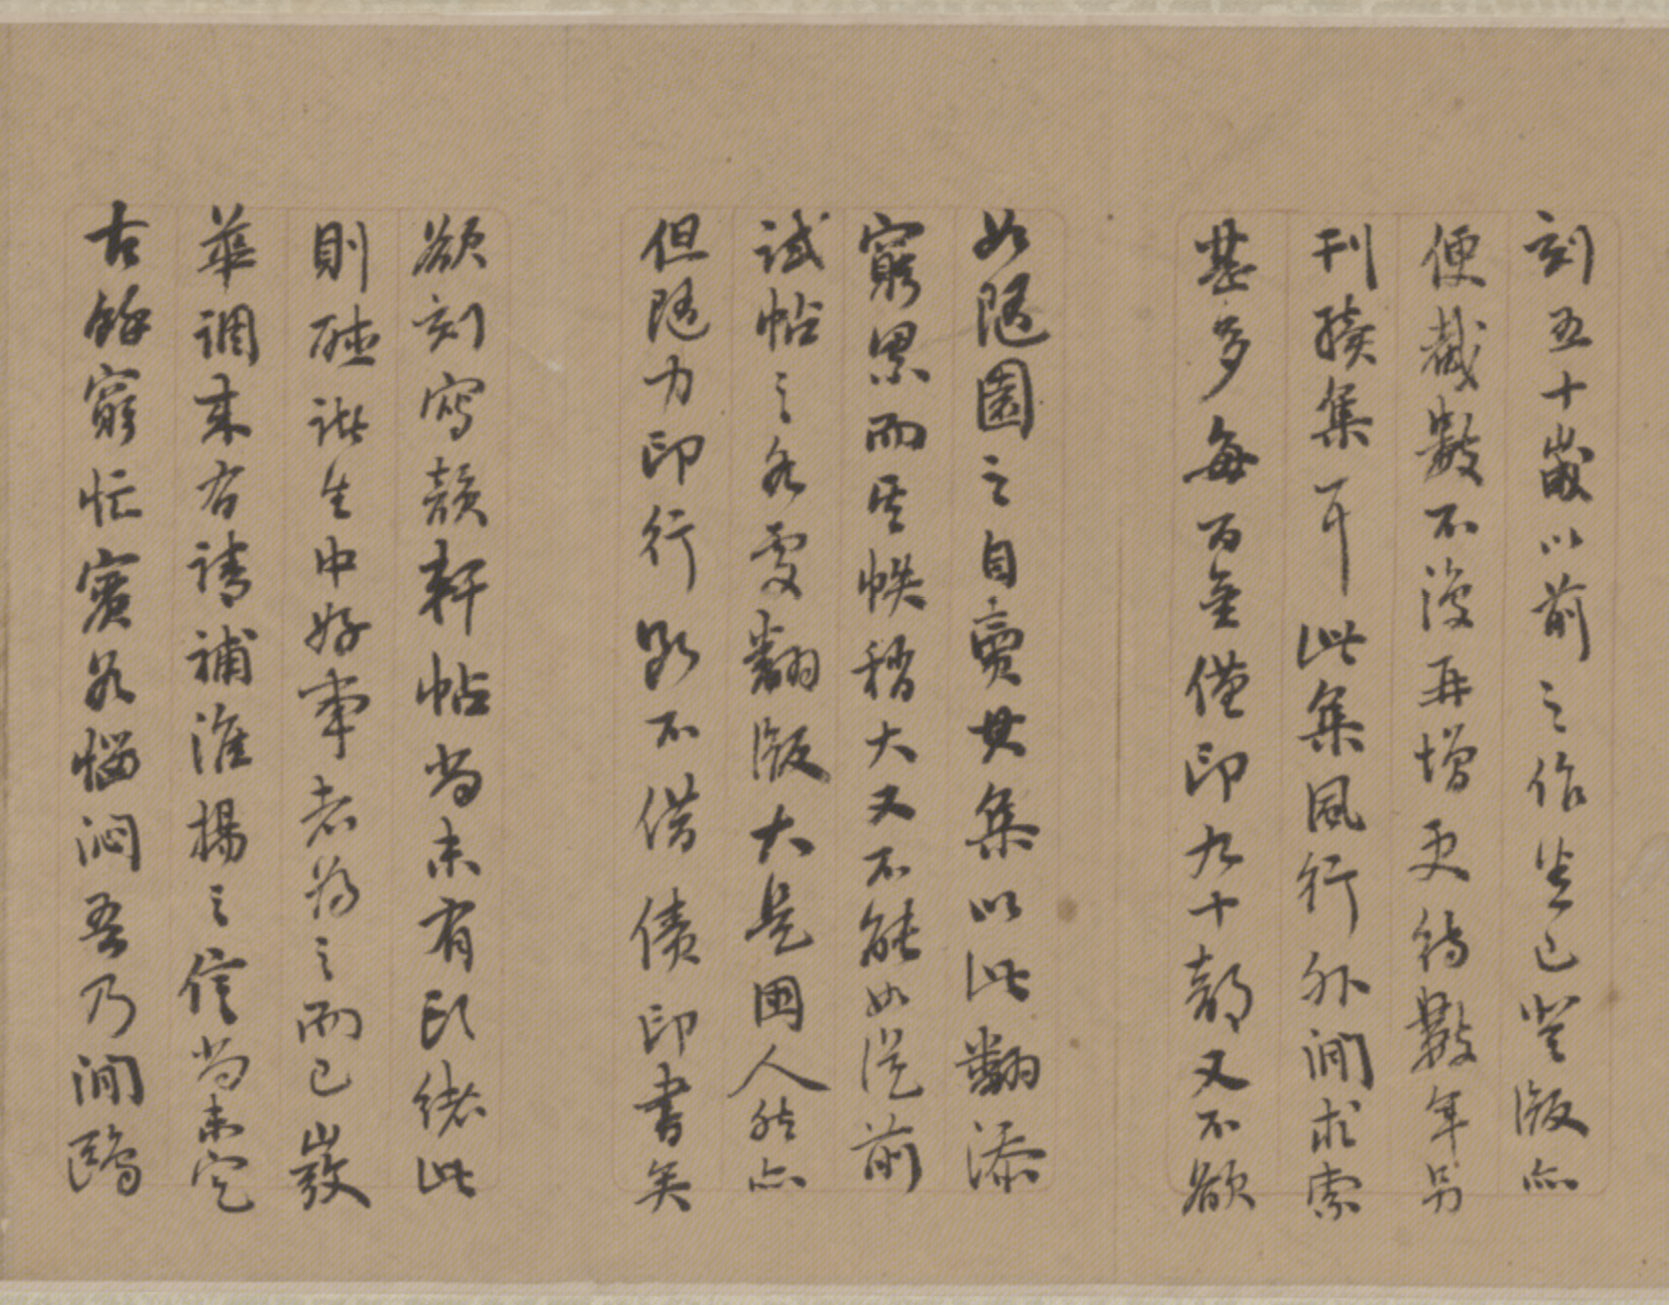 刻五十歲以前之作盖已登版亦
便截數不復再增更待數年另
刊續集耳此集風行外間求索
甚多每百金僅印九十部又不欲
如隨園之自賣其集以此翻添
窮累而其帙稍大又不能如從前
試帖之各處翻版大是困人然亦
但隨力印行路不借債印書矣
欲刻寫韻軒帖尚未有頭緒此
則聽諸生中好事者爲之而已嚴
華調來古請補淮揚之信尚未定
古餘窮忙實爲惱悶吾乃閒鷗